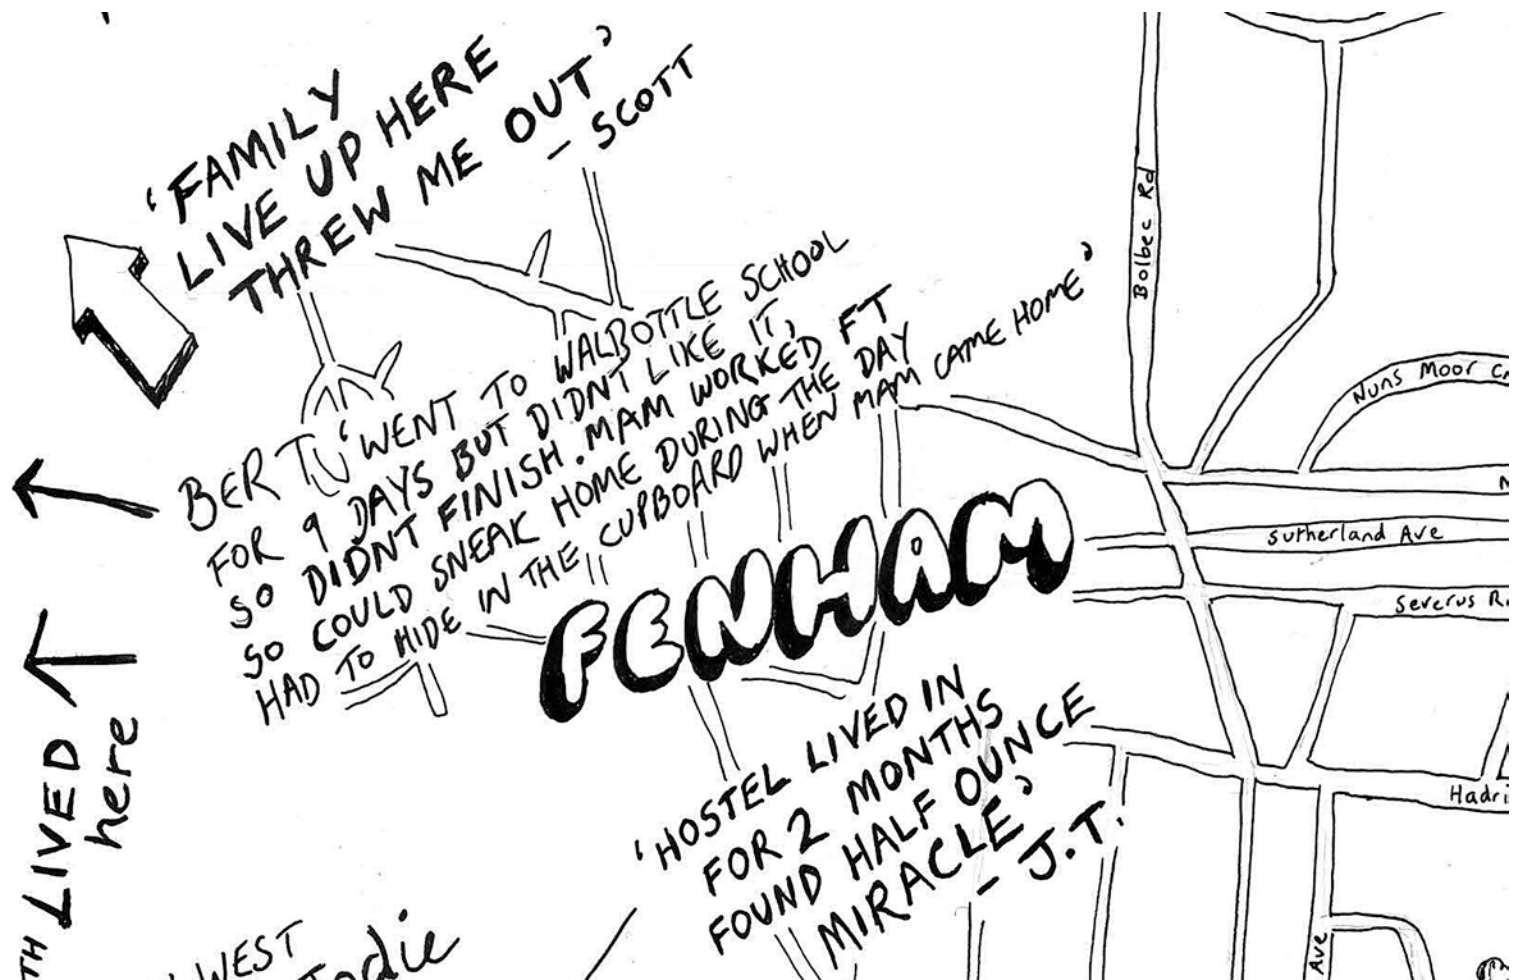 'FAMILY
LIVE UP HERE
THREW ME OUT'
- SCOTT
BERT 'WENT TO WALBOTTLE SCHOOL
FOR 9 DAYS BUT DIDNT LIKE IT,
SO DIDNT FINISH. MAM WORKED FT
SO COULD SNEAK HOME DURING THE DAY
HAD TO HIDE IN THE CUPBOARD WHEN MAM CAME HOME'
FENHAM
'HOSTEL LIVED IN
FOR 2 MONTHS
FOUND HALF OUNCE
MIRACLE'
- J.T.
Bolbec Rd
Nuns Moor Cr
Sutherland Ave
Severus R
Hadri
Ave
TH LIVED
here
WEST
Jodie